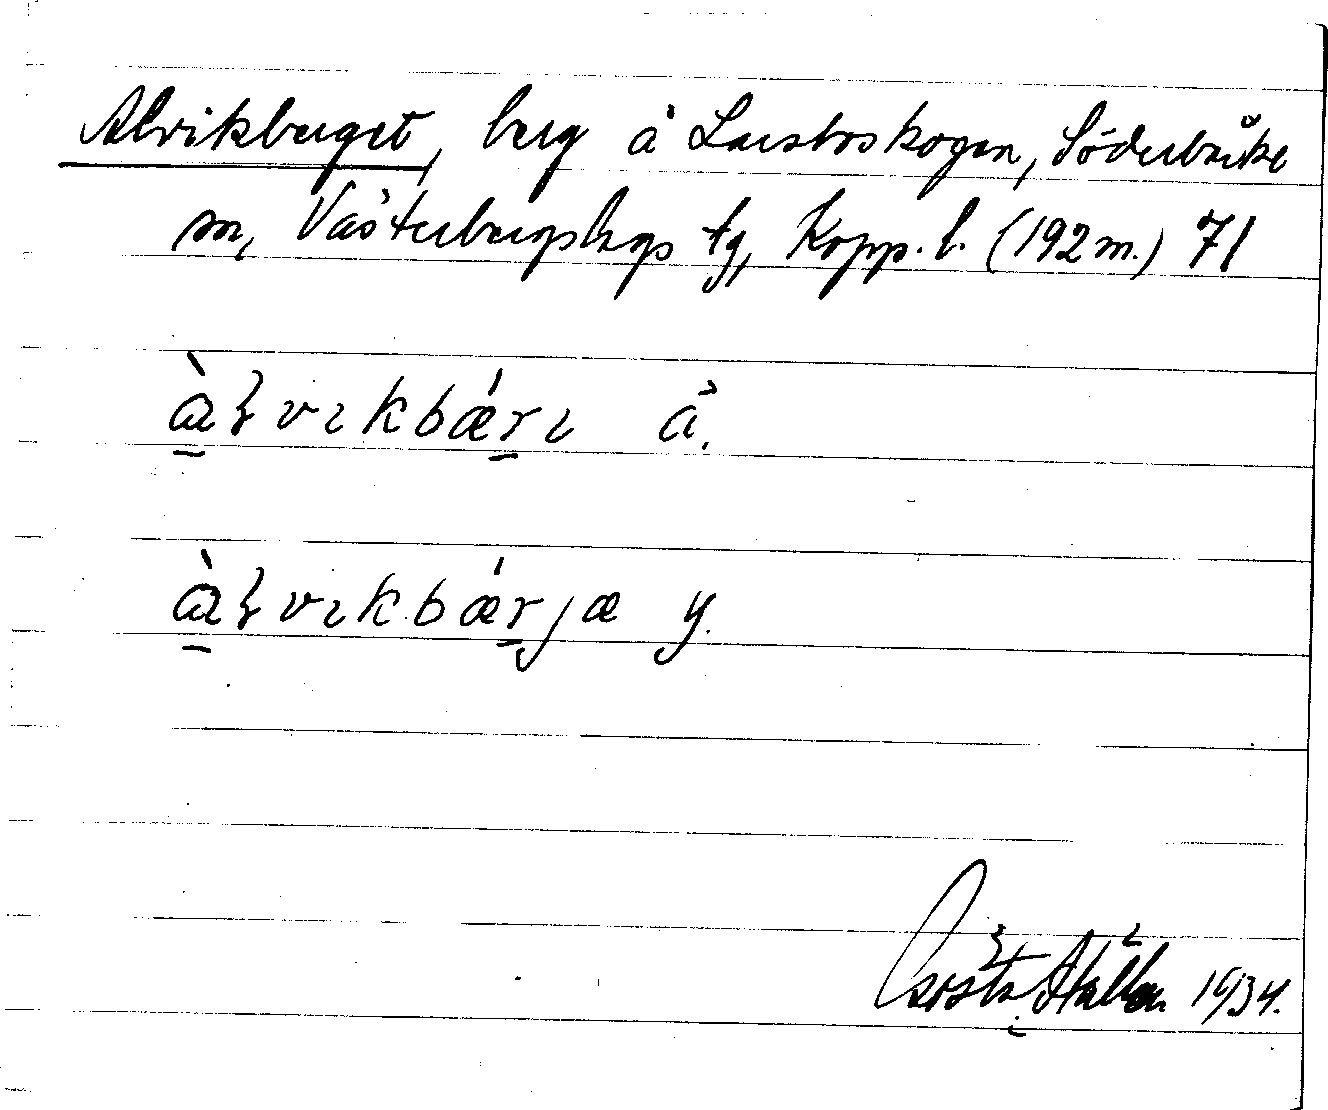 Alvikberget, berg å Larsboskogen, Söderbärke
sn, Västerbergslags tg, Kopp. l. (192 m.) 71
àɽvıkbǽrı å.
àɽvıkbǽrjæ y.
Gösta 1934.